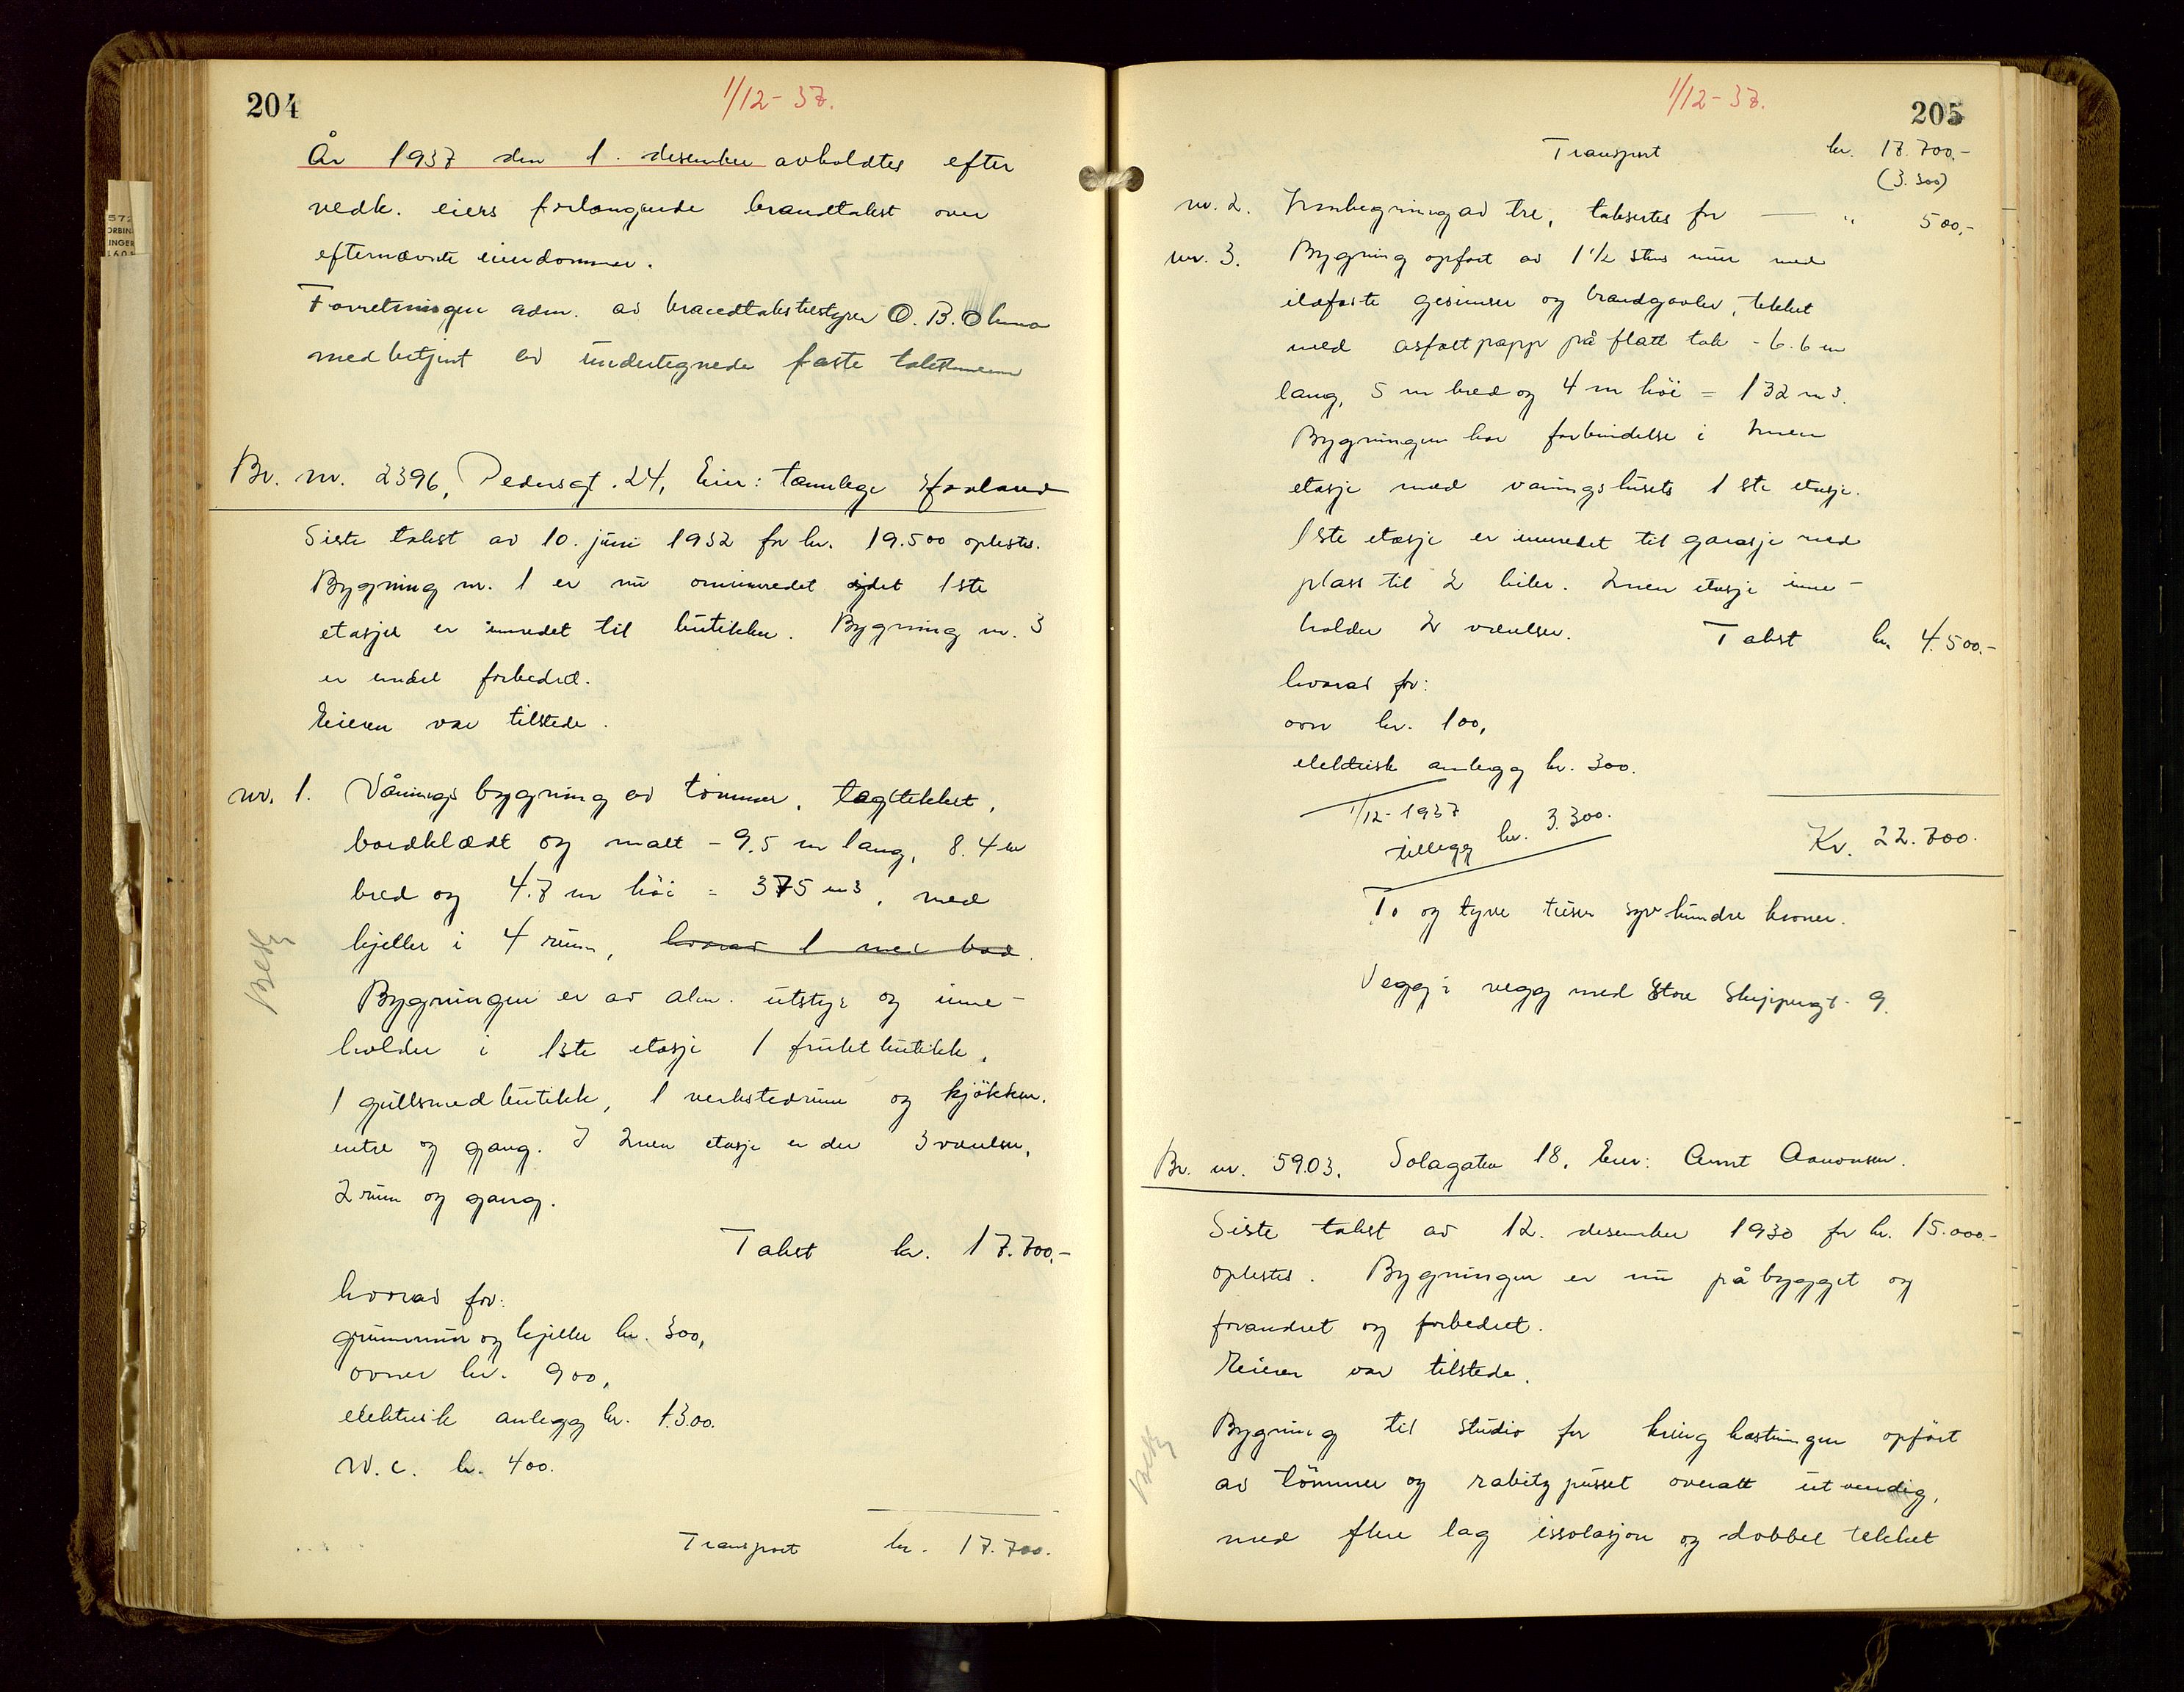 204
1/12-37.
År 1937 den 1. desember avholdtes efter
vedk. eiers forlangende brandtakst over
efternævnte eiendommer.
Forretningen adm. av brandtakstbestyrer O. B.
med betjent av undertegnede faste takstmenn
Br. nr. 2396, Pedersgt. 24, Eier: tannlege Hovland
Siste takst av 10. juni 1932 for kr. 19.500 oplestes.
Bygning nr. 1 er nu ominnredet idet 1ste
etasje er innredet til butikker. Bygning nr. 3
er endel forbedret.
Eieren var tilstede.
nr. 1. Våningsbygning av tømmer, tagtekket,
bordklædt og malt - 9.5 m lang, 8.4 m
bred og 4.7 m høi = 375 m3, med
kjeller i 4 rum, hvorav 1 med bad.
Bygningen er av alm. utstyr og inne-
holder i 1ste etasje 1 fruktbutikk,
1 gullsmedbutikk, 1 verkstedrum og kjøkken,
entre og gang. I 2nen etasje er der 3 værelser,
2 rum og gang.
Takst kr. 17.700,-
hvorav for:
grunnmur og kjeller kr. 300,
ovner kr. 900,
elektrisk anlegg kr. 1.300.
W.c. kr. 400.
Transport kr. 17.700.
205
1/12-37.
Transport kr. 17.700,-
(3.300)
nr. 2. av tre, taksertes for — " 500,-
nr. 3. Bygning opført av 1 1/2 stens mur med
ildfaste gesimser og brandgavler, tekket
med asfaltpapp på flatt tak - 6.6 m
lang, 5 m bred og 4 m høi = 132 m3.
Bygningen har forbindelse i 2nen
etasje med våningshusets 1ste etasje.
1ste etasje er innredet til garasje med
plass til 2 biler. 2nen etasje inne-
holder 2 værelser. Takst kr. 4.500.-
hvorav for:
ovn kr. 100,
elektrisk anlegg kr. 300.
1/12-1937
tillegg kr. 3.300.
Kr. 22.700.
To og tyve tusen syv hundre kroner.
Vegg i vegg med Store Skippergt. 9.
Br. nr. 5903. Solagaten 18, Eier: Arnt Aanonsen.
Siste takst av 12. desember 1930 for kr. 15.000.-
oplestes. Bygningen er nu påbygget og
forandret og forbedret.
Eieren var tilstede.
Bygning til studio for kringkastningen opført
av tømmer og rabitzpusset overalt utvendig,
med flere lag issolasjon og dobbel tekket